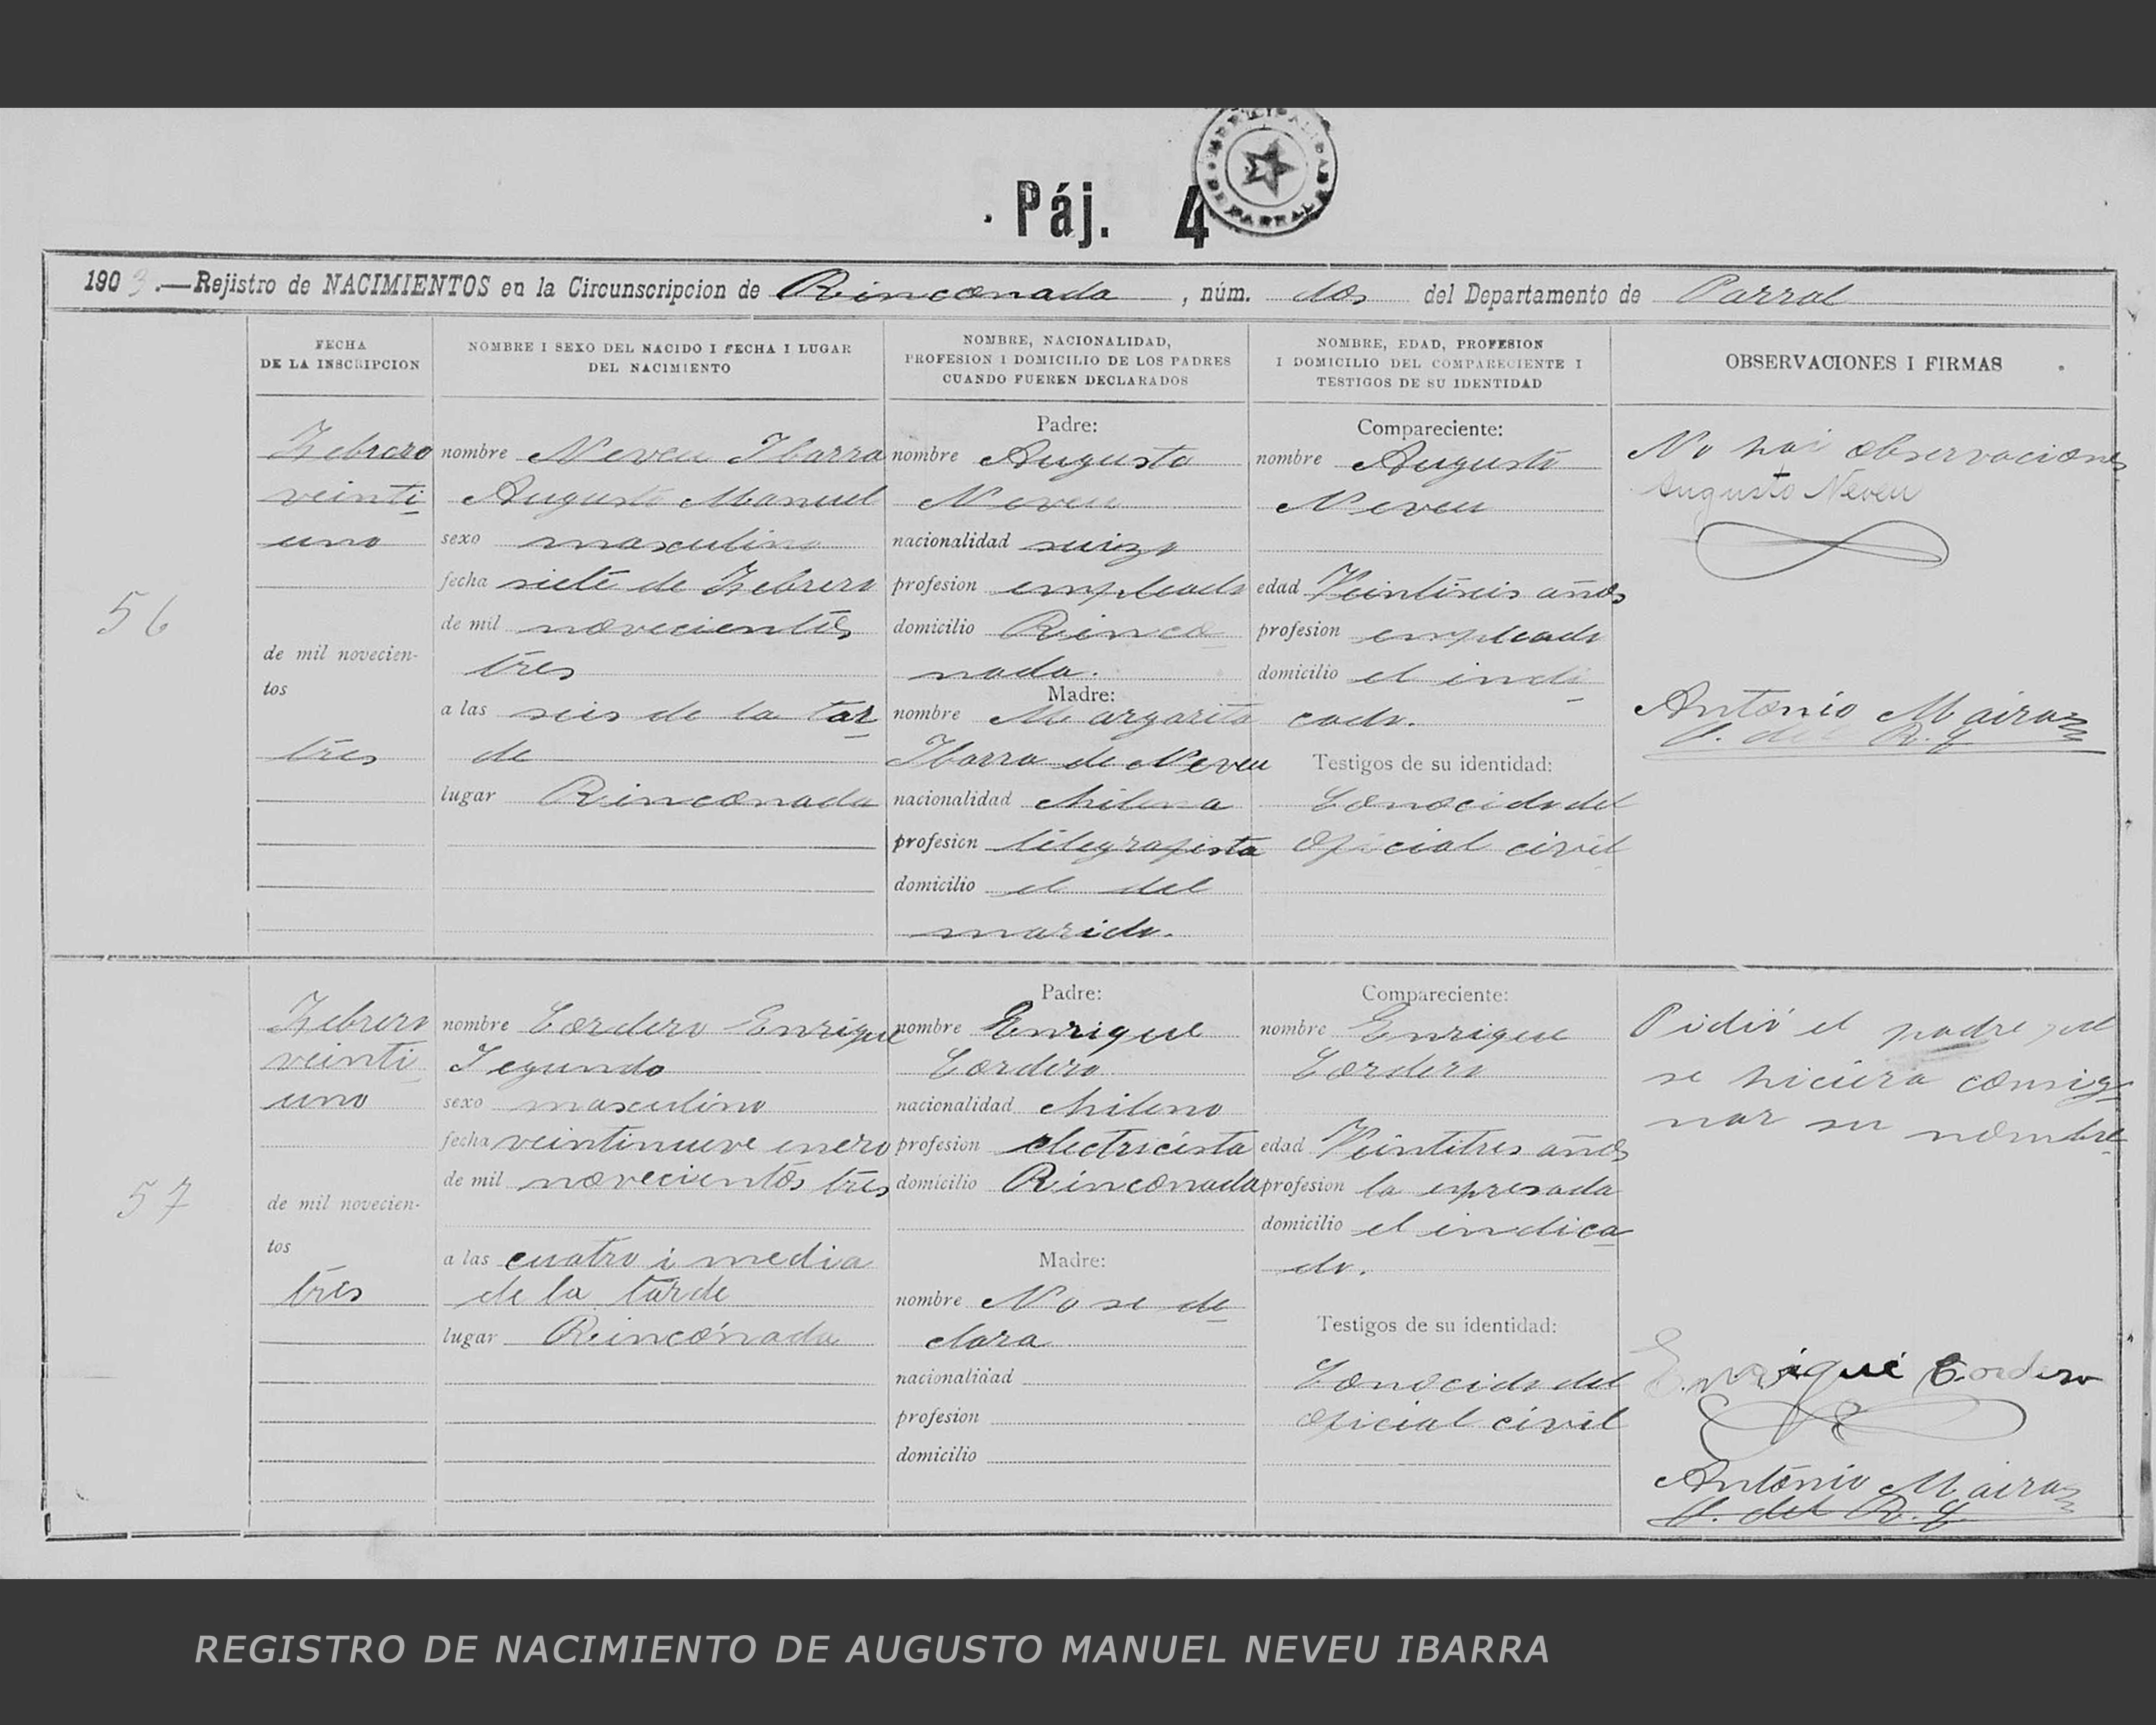 MUNICIPALIDAD DE PARRAL
Páj. 4
1903.—Rejistro de NACIMIENTOS en la Circunscripcion de Rinconada, núm. dos del Departamento de Parral
FECHA
DE LA INSCRIPCION
NOMBRE I SEXO DEL NACIDO I FECHA I LUGAR
DEL NACIMIENTO
NOMBRE, NACIONALIDAD,
PROFESION I DOMICILIO DE LOS PADRES
CUANDO FUEREN DECLARADOS
NOMBRE, EDAD, PROFESION
I DOMICILIO DEL COMPARECIENTE I
TESTIGOS DE SU IDENTIDAD
OBSERVACIONES I FIRMAS
56
Febrero
veinti-
uno
de mil novecien-
tos
tres
nombre Neveu Ibarra
Augusto Manuel
sexo masculino
fecha siete de Febrero
de mil novecientos
tres
a las seis de la tar-
de
lugar Rinconada
Padre:
nombre Augusto
Neveu
nacionalidad suizo
profesion empleado
domicilio Rinco-
nada.
Madre:
nombre Margarita
Ibarra de Neveu
nacionalidad chilena
profesion telegrafista
domicilio el del
marido.
Compareciente:
nombre Augusto
Neveu
edad Veintiseis años
profesion empleado
domicilio el indi-
cado.
Testigos de su identidad:
Conocido del
oficial civil
No hai observaciones
Augusto Neveu
Antonio Maira
O. del R. C.
57
Febrero
veinti-
uno
de mil novecien-
tos
tres
nombre Cordero Enrique
Segundo
sexo masculino
fecha veintinueve enero
de mil novecientos tres
a las cuatro i media
de la tarde
lugar Rinconada
Padre:
nombre Enrique
Cordero
nacionalidad chileno
profesion electricista
domicilio Rinconada
Madre:
nombre No se de-
clara
nacionalidad
profesion
domicilio
Compareciente:
nombre Enrique
Cordero
edad Veintitres años
profesion la espresada
domicilio el indica-
do.
Testigos de su identidad:
Conocido del
oficial civil
Pidió el padre que
se hiciera consig-
nar su nombre.
Enrique Cordero
Antonio Maira
O. del R. C.
REGISTRO DE NACIMIENTO DE AUGUSTO MANUEL NEVEU IBARRA